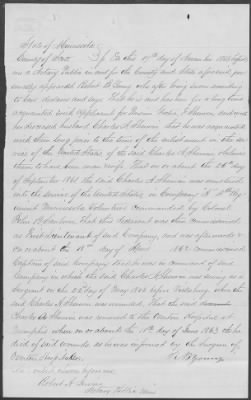 State of Minnesota
County of Scott } ss On this 17th day of November 1863 before
me a Notary Public in and for the County and State aforesaid per-
sonally appeared Robert B. Young who after being sworn according
to law declares and says that he is and has been for a long time
acquainted with applicant for Pension
her deceased husband Charles A. that he was acquainted
with them long prior to the time of his enlistment in the ser-
vice of the United States of the said Charles A.
them to have been man & wife. That on or about the 26th day
of September 1861 the said Charles A. was enlisted
into the service of the United States, in Company "A" 4th Reg-
iment Minnesota Volunteers commanded by Colonel
John B. Sanborn, that this deponent was then commissioned
as First Lieutenant of said Company, and was afterwards &
on or about the 18th day of April 1862 commissioned
Captain of said Company. That he was in command said
Company in which the said Charles A. was serving as a
Sergeant on the 22d day of May 1863 before Vicksburg, when the
said Charles A. was wounded. That the said
Charles A. was removed to the Overton Hospital at
Memphis where on or about the 11th day of June 1863 he
died of said wounds, as he was informed by the Surgeon of
Overton Hospital.
R B Young
before me
Robert A. Irwin
Notary Public Minn